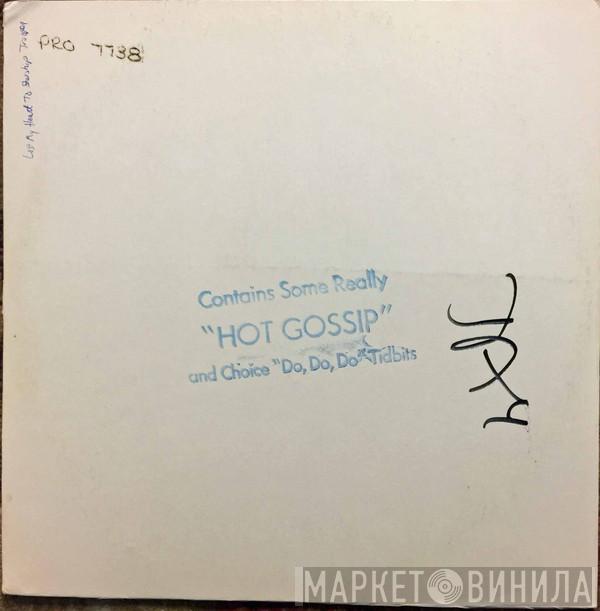 PRO 7738
Lost My Heart To Starship Trooper
Contains Some Really
"HOT GOSSIP"
and Choice "Do, Do, Do" Tidbits
МАРКЕТ ВИНИЛА